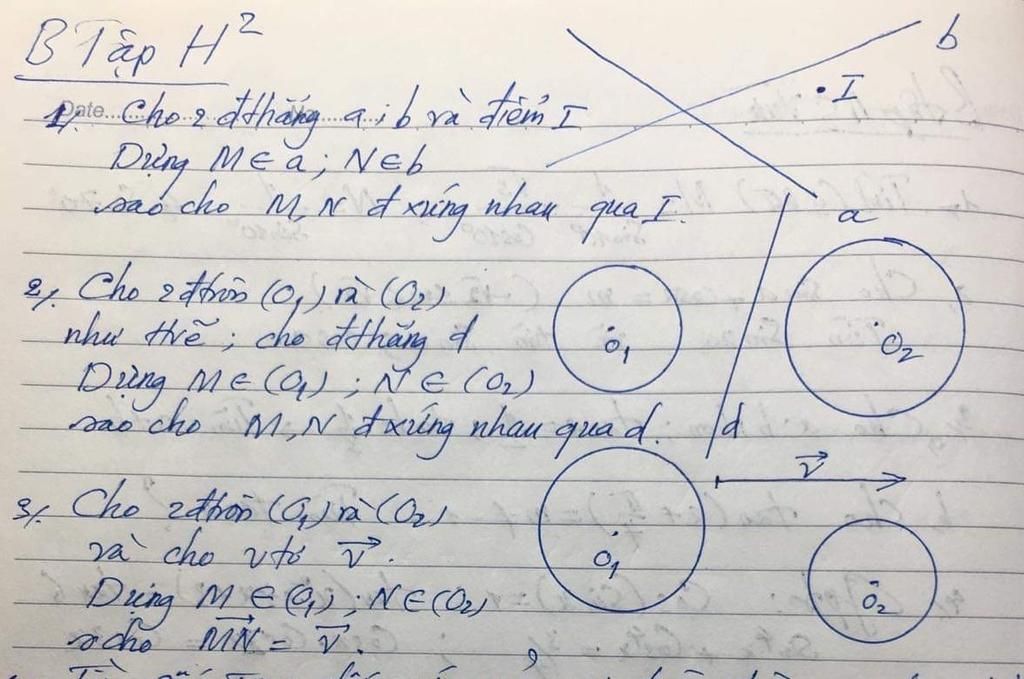 B Tập H²
Date.......... No..........
1/. Cho 2 đthẳng a; b và điểm I
Dựng M ∈ a; N ∈ b
sao cho M, N đ xứng nhau qua I.
b
I
a
2/. Cho 2 đtròn (O₁) và (O₂)
như hvẽ; cho đthẳng d
Dựng M ∈ (O₁); N ∈ (O₂)
sao cho M, N đ xứng nhau qua d.
O₁
O₂
d
3/. Cho 2 đtròn (O₁) và (O₂)
và cho vtơ v⃗.
Dựng M ∈ (O₁); N ∈ (O₂)
s cho M⃗N⃗ = v⃗.
v⃗
O₁
O₂